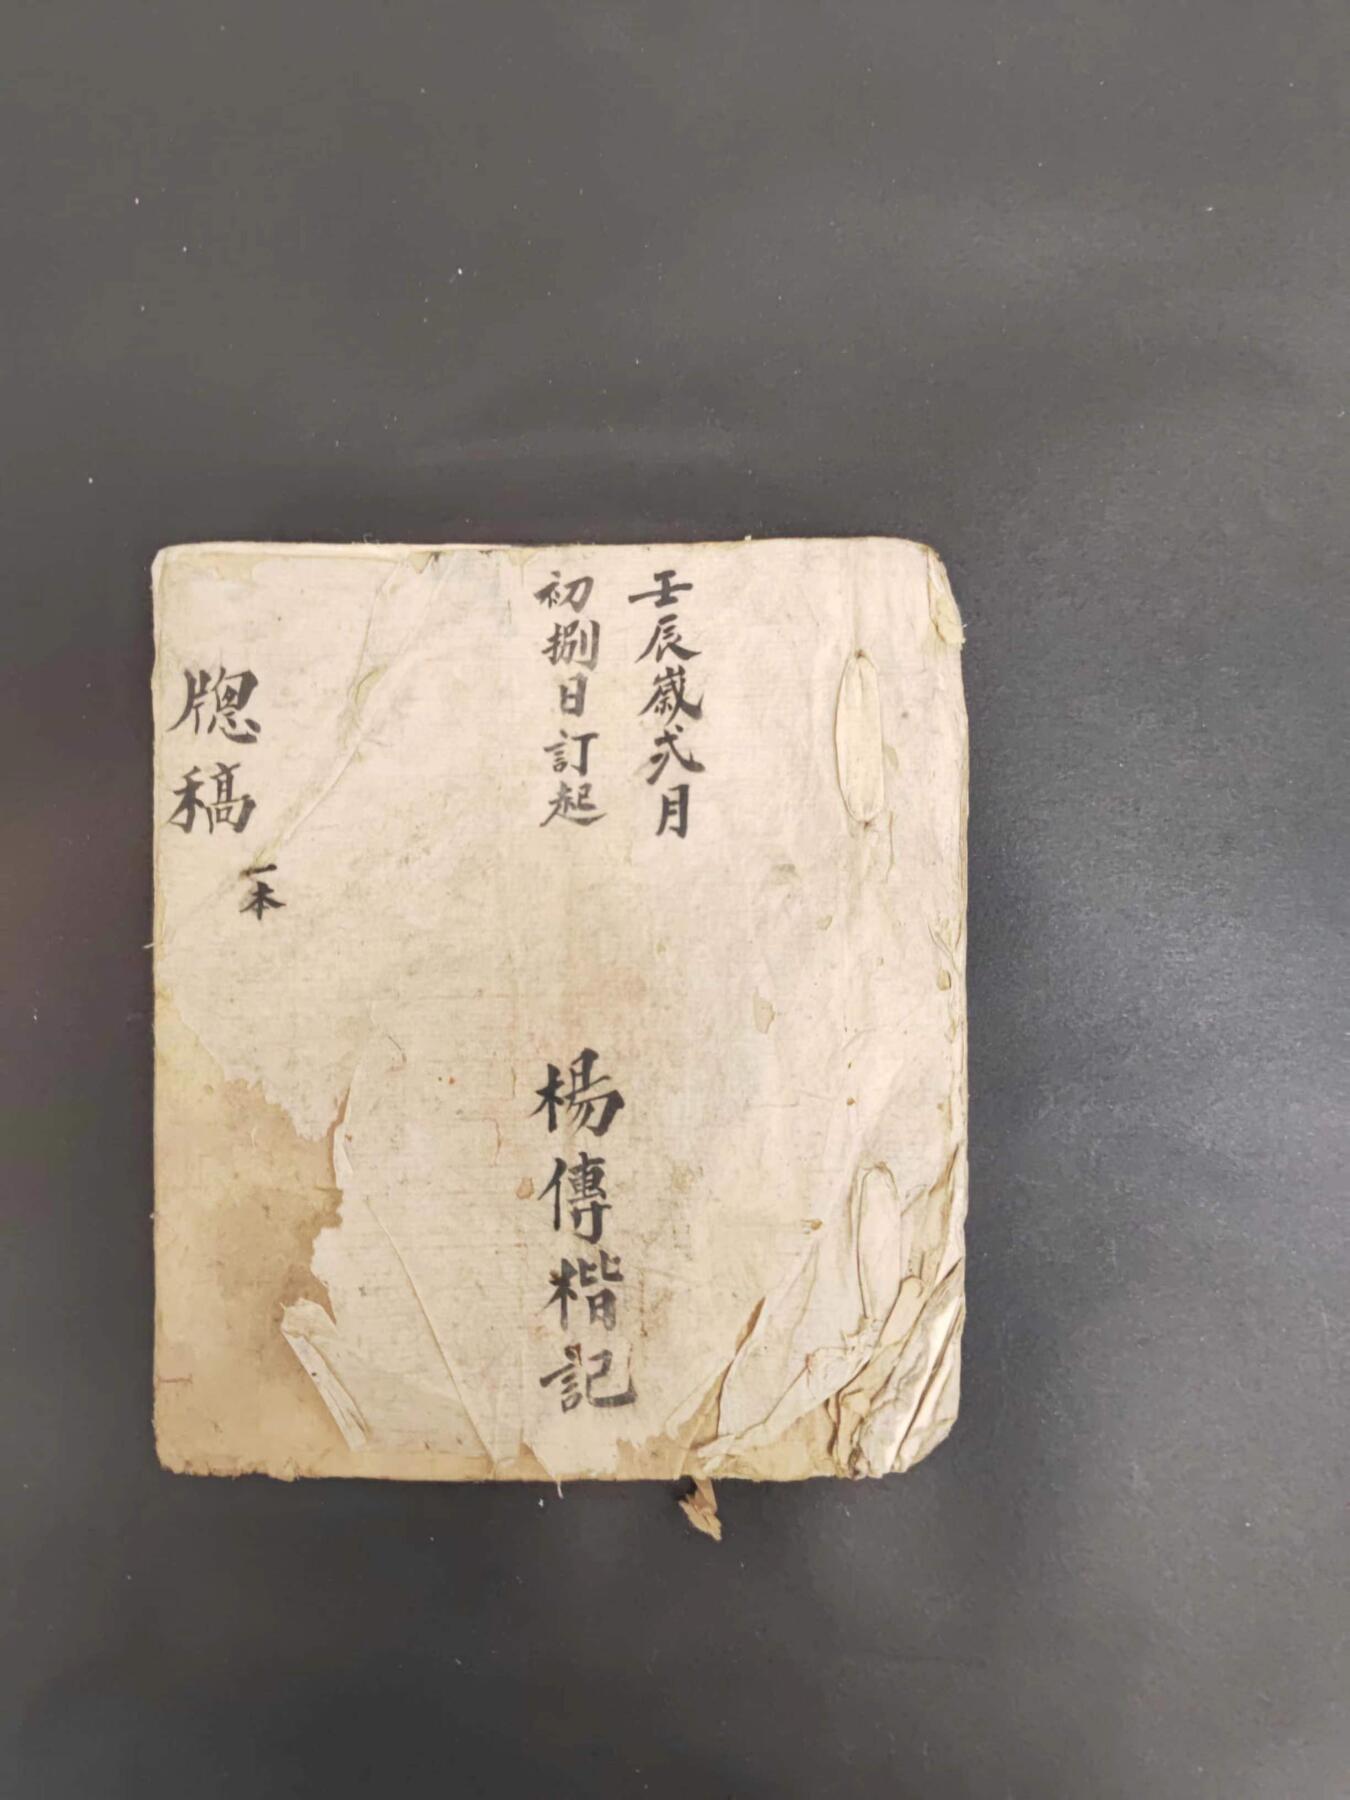 壬辰歲弍月
初捌日訂起
楊傳楷記
牕稿
一本